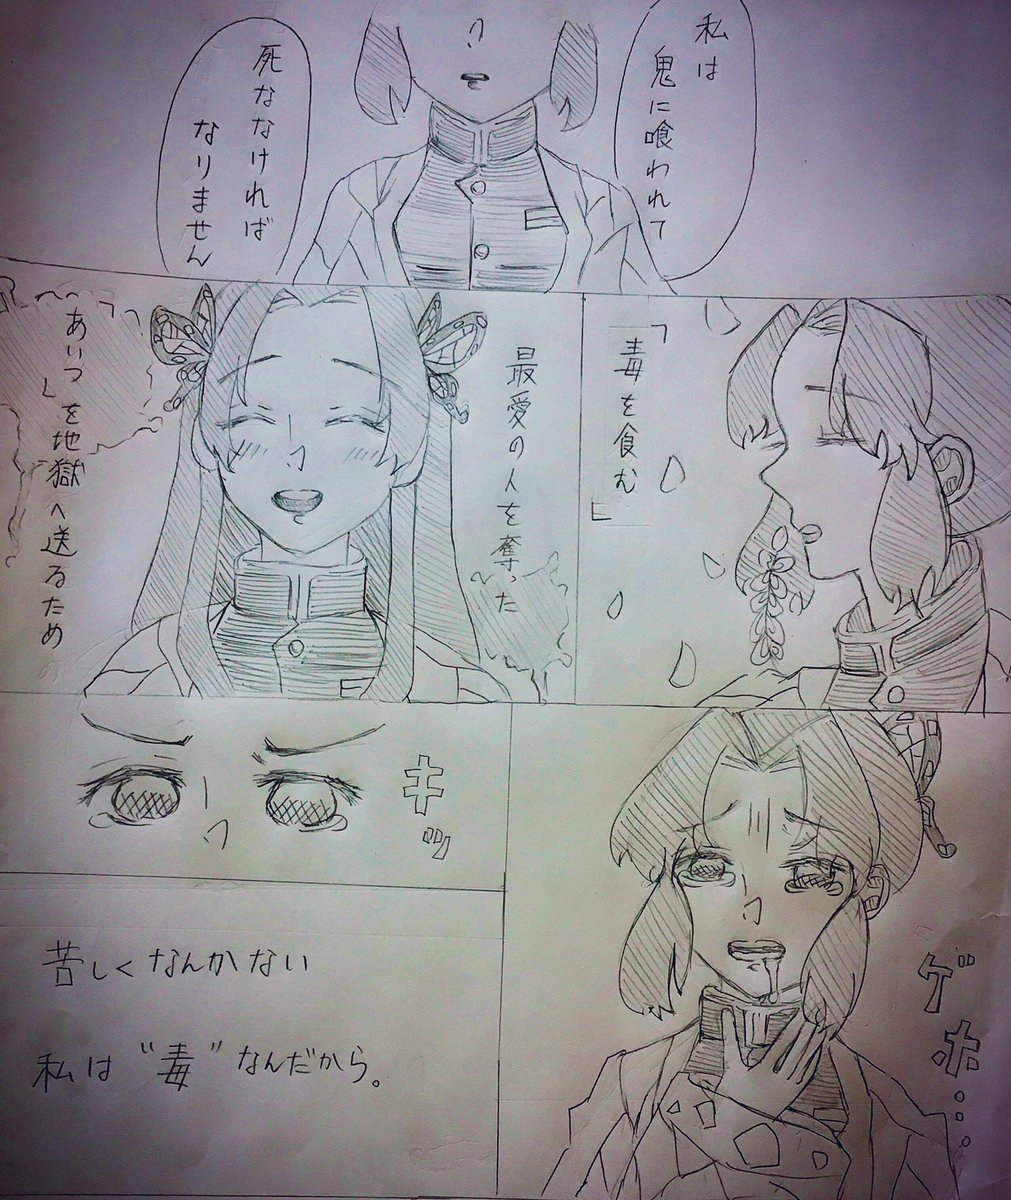 私は
鬼に喰われて
死ななければ
なりません
「毒を食む」
最愛の人を奪った
「あいつ」を地獄へ送るため
キッ
ゲホ…
苦しくなんかない
私は“毒”なんだから。